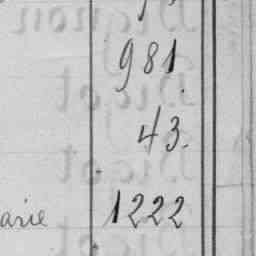 981.
43.
arie 1222